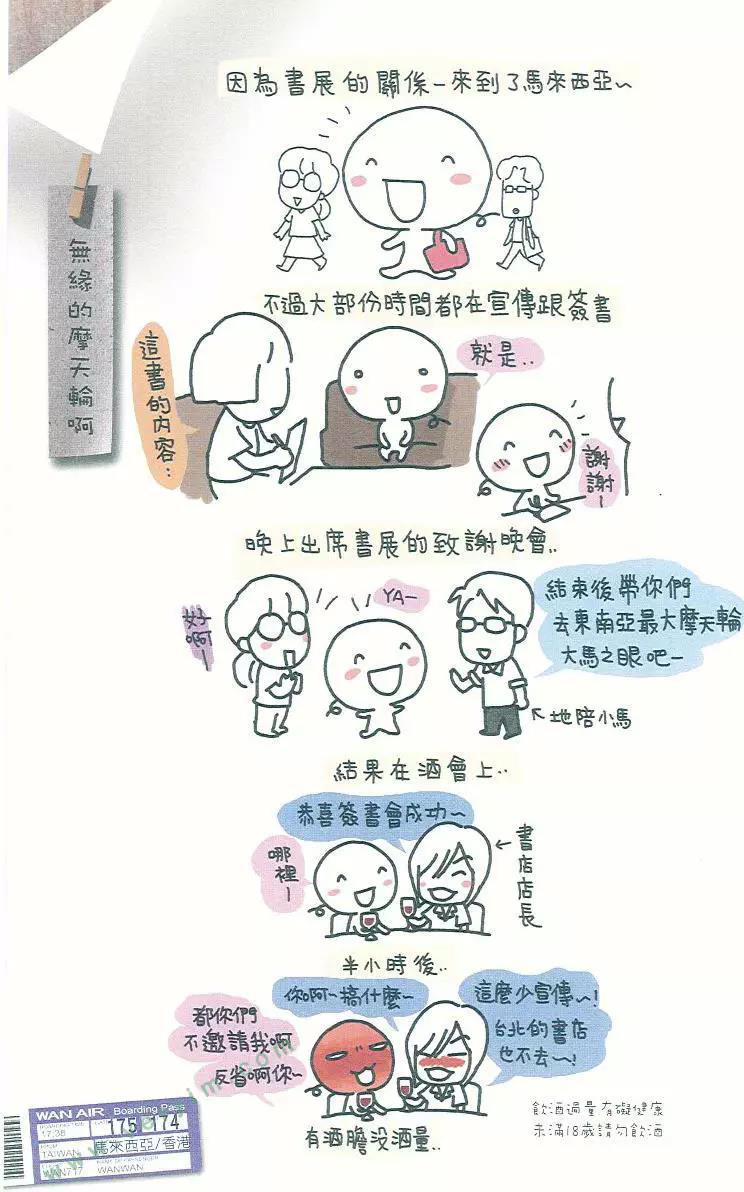 因為書展的關係-來到了馬來西亞~
無緣的摩天輪啊
不過大部份時間都在宣傳跟簽書
這書的內容…
就是..
謝謝-
晚上出席書展的致謝晚會..
好啊-
YA-
結束後帶你們
去東南亞最大摩天輪
大馬之眼吧-
地陪小馬
結果在酒會上..
恭喜簽書會成功~
哪裡-
書店店長
半小時後..
你啊~搞什麼~
這麼少宣傳~!
台北的書店
也不去~!
都你們
不邀請我啊
反省啊你~
有酒膽沒酒量..
飲酒過量有礙健康
未滿18歲請勿飲酒
WAN AIR Boarding Pass
17:38
175 174
TAIWAN
馬來西亞/香港
WAN717 WANWAN